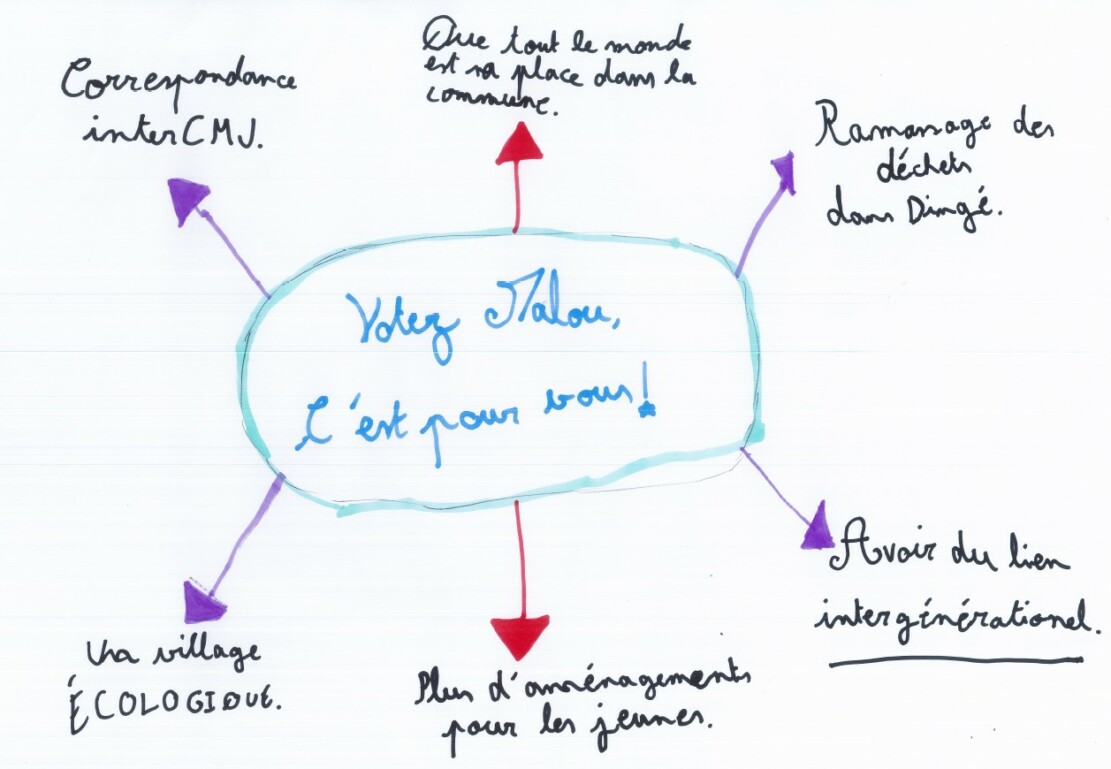 Que tout le monde
est sa place dans la
commune.
Correspondance
interCMJ.
Ramassage des
déchets
dans Dingé.
Votez Malou,
C'est pour vous!
Avoir du lien
intergénérationel.
Un village
ÉCOLOGIQUE.
Plus d'aménagements
pour les jeunes.